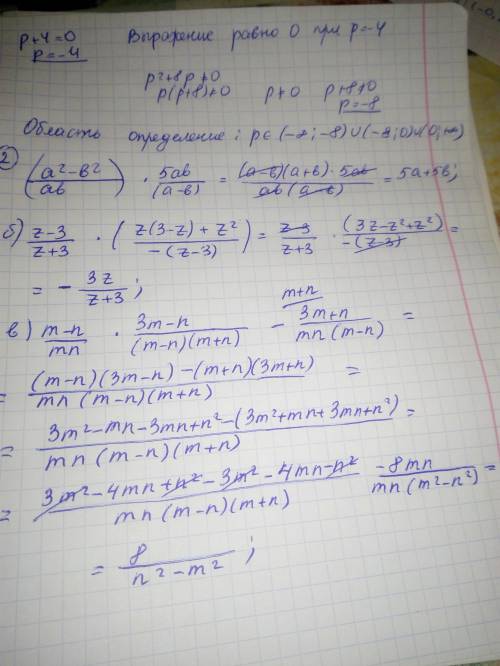 p+4=0 Выражение равно 0 при p=-4
p=-4
p²+8p≠0
p(p+8)≠0 p≠0 p+8≠0
p=-8
Область определение: p∈(-∞;-8)∪(-8;0)∪(0;+∞)
2 ((a²-в²)/ab) · 5ab/(a-в) = (a-в)(a+в)·5ab/ab(a-в) = 5a+5в;
б) z-3/z+3 · (z(3-z)+z²/-(z-3)) = z-3/z+3 · (3z-z²+z²)/-(z-3) =
= - 3z/z+3;
в) m-n/mn · 3m-n/(m-n)(m+n) - m+n/ 3m+n/mn(m-n) =
= (m-n)(3m-n)-(m+n)(3m+n)/mn(m-n)(m+n) =
= 3m²-mn-3mn+n²-(3m²+mn+3mn+n²)/mn(m-n)(m+n) =
= 3m²-4mn+n²-3m²-4mn-n²/mn(m-n)(m+n) -8mn/mn(m²-n²) =
= 8/n²-m²;